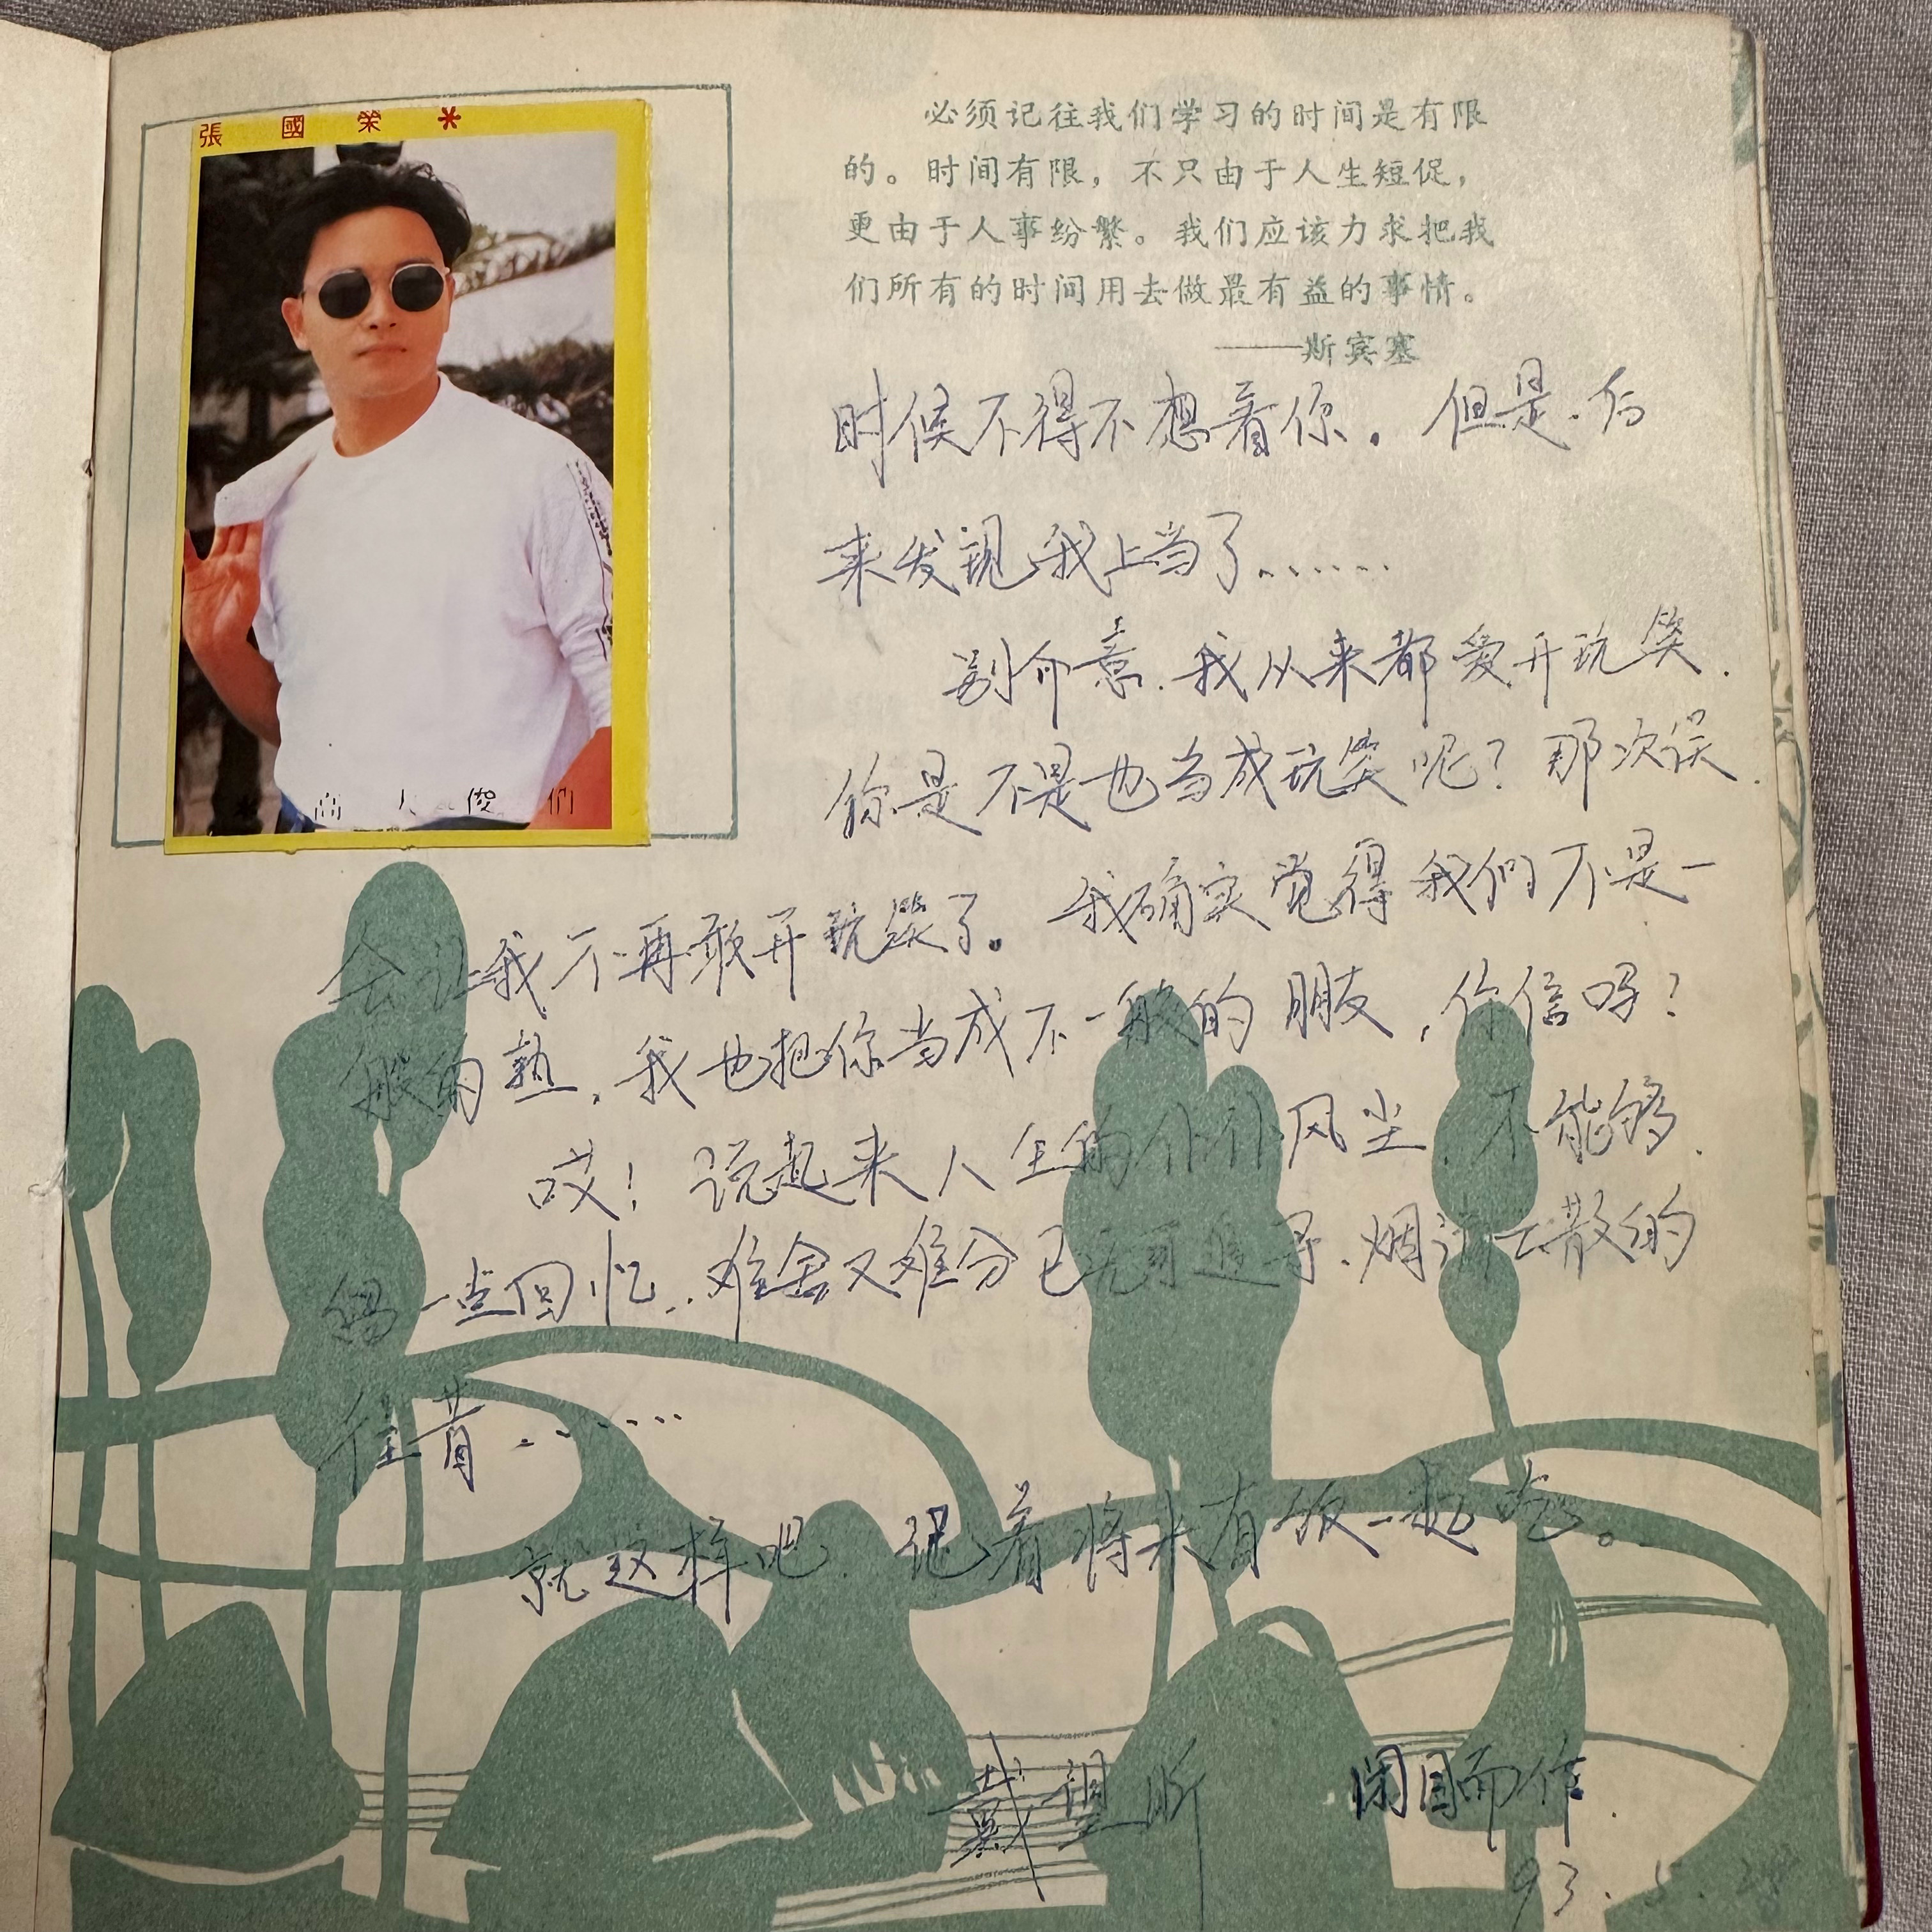 張國榮*
高 人 俊 们
必须记往我们学习的时间是有限
的。时间有限，不只由于人生短促，
更由于人事纷繁。我们应该力求把我
们所有的时间用去做最有益的事情。
——斯宾塞
时候不得不想着你。但是.后
来发现我上当了……
别介意.我从来都爱开玩笑.
你是不是也当成玩笑呢？那次误
会让我不再敢开玩笑了。我确实觉得我们不是一
般的熟，我也把你当成不一般的朋友，你信吗？
哎！说起来人生的仆仆风尘.不能够.
留一点回忆..难舍又难分已无可追寻.烟消云散的
往昔……
就这样吧.记着将来有饭一起吃。
戴 昕 闭目而作.
93.5.28